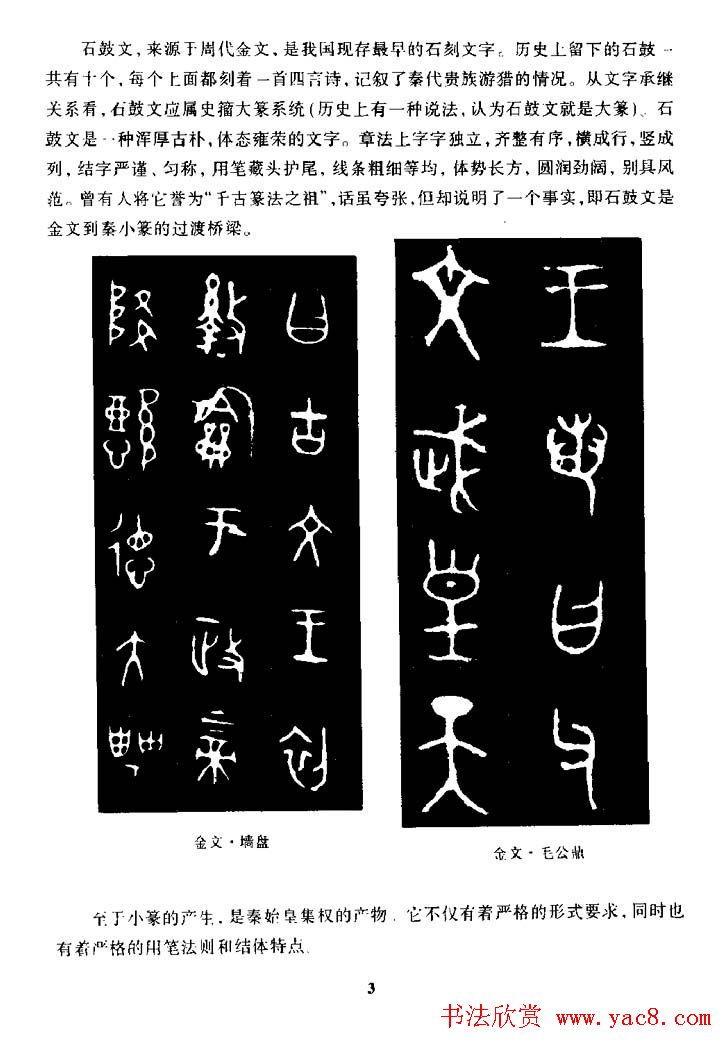 石鼓文，来源于周代金文，是我国现存最早的石刻文字。历史上留下的石鼓一
共有十个，每个上面都刻着一首四言诗，记叙了秦代贵族游猎的情况。从文字承继
关系看，石鼓文应属史籀大篆系统(历史上有一种说法，认为石鼓文就是大篆)。石
鼓文是一种浑厚古朴，体态雍荣的文字。章法上字字独立，齐整有序，横成行，竖成
列，结字严谨、匀称，用笔藏头护尾，线条粗细等均，体势长方，圆润劲阔，别具风
范。曾有人将它誉为“千古篆法之祖”，话虽夸张，但却说明了一个事实，即石鼓文是
金文到秦小篆的过渡桥梁。
曰古文王
于政
德大
王
曰父
文武皇天
金文·墙盘
金文·毛公鼎
至于小篆的产生，是秦始皇集权的产物。它不仅有着严格的形式要求，同时也
有着严格的用笔法则和结体特点。
3
书法欣赏 www.yac8.com